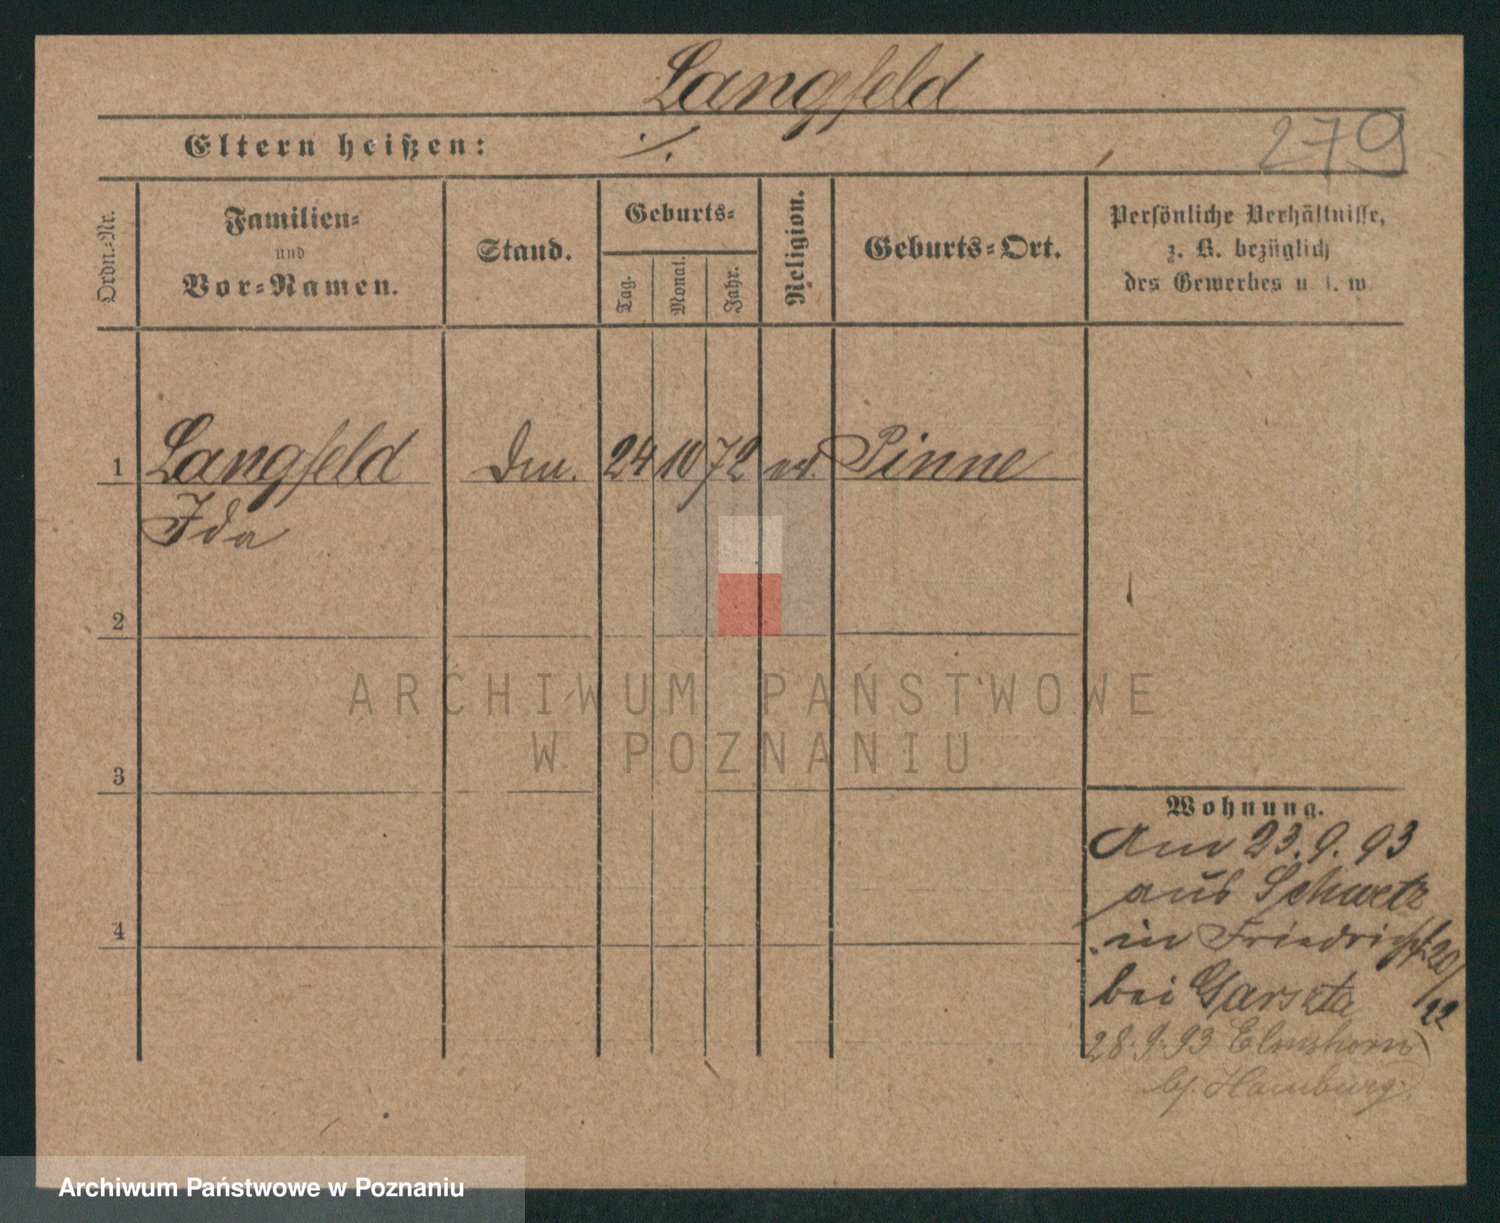 Langfeld
Eltern heißen: ./.
279
Ordn.=Nr.
Familien=
und
Vor=Namen.
Stand.
Geburts=
Tag.
Monat.
Jahr.
Religion.
Geburts=Ort.
Persönliche Verhältnisse,
z. B. bezüglich
des Gewerbes u. s. w.
1 Langfeld 24 10 72 Pinne
Ida
2
ARCHIWUM PAŃSTWOWE
W POZNANIU
3
Wohnung.
23.9.93
aus Schwetz
in Friedrichst 20/
22
bei Garszta
28.9.93 Elmshorn
b/. Hamburg.
4
Archiwum Państwowe w Poznaniu